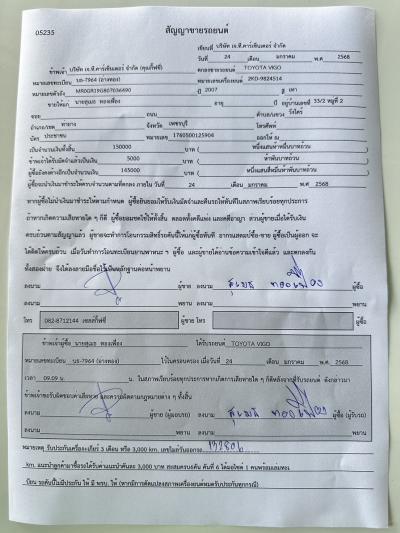 05235
สัญญาขายรถยนต์
เขียนที่ บริษัท เจ.ที.คาร์เซ็นเตอร์ จำกัด
วันที่ 24 เดือน มกราคม พ.ศ 2568
ข้าพเจ้า บริษัท เจ.ที.คาร์เซ็นเตอร์ จำกัด (คุณกี้ฟซี่) ตกลงขายรถยนต์ TOYOTA VIGO
หมายเลขทะเบียน บธ-7964 (อ่างทอง) หมายเลขเครื่องยนต์ 2KD-9824514
หมายเลขตัวถัง MR0GR19G807036690 ปี 2007 สี เทา
ขายให้แก่ นายสุเมธ ทองเฟื่อง อายุ ปี อยู่บ้านเลขที่ 33/2 หมู่ที่ 2
ซอย ถนน ตำบล/แขวง วังไคร้
อำเภอ/เขต ท่ายาง จังหวัด เพชรบุรี โทรศัพท์
บัตร ประชาชน หมายเลข 1760500125904 ออกให้ ณ
เป็นจำนวนเงินทั้งสิ้น 150000 บาท ( หนึ่งแสนห้าหมื่นบาทถ้วน
ข้าพเจ้าได้รับมัดจำแล้วเป็นเงิน 5000 บาท ( ห้าพันบาทถ้วน
ผู้ซื้อยังคงค้างอีกเป็นจำนวนเงิน 145000 บาท ( หนึ่งแสนสี่หมื่นห้าพันบาทถ้วน
ผู้ซื้อจะนำเงินมาชำระให้ครบจำนวนตามที่ตกลง ภายใน วันที่ 24 เดือน มกราคม พ.ศ 2568
หากผู้ซื้อไม่นำเงินมาชำระให้ตามกำหนด ผู้ซื้อยินยอมให้ริบเงินมัดจำและคืนรถให้ทันทีในสภาพเรียบร้อยทุกประการ
ถ้าหากเกิดความเสียหายใด ๆ ก็ดี ผู้ซื้อยอมชดใช้ให้ทั้งสิ้น ตลอดทั้งคดีแพ่ง และคดีอาญา ส่วนผู้ขายเมื่อได้รับเงิน
ครบถ้วนตามสัญญาแล้ว ผู้ขายจะทำการโอนกรรมสิทธิ์รถคันนี้ให้แก่ผู้ซื้อทันที อากรแสตมป์ซื้อ-ขาย ผู้ซื้อเป็นผู้ออก จะ
ได้ติดให้ครบถ้วน เมื่อวันทำการโอนทะเบียนยานพาหนะ ๆ ผู้ซื้อ และผู้ขายได้อ่านข้อความเข้าใจดีแล้ว และตกลงกัน
ทั้งสองฝ่าย จึงได้ลงลายมือชื่อไว้เป็นหลักฐานต่อหน้าพยาน
ลงนาม ผู้ขาย ลงนาม สุเมธ ทองเฟื่อง ผู้ซื้อ
ลงนาม พยาน ลงนาม พยาน
โทร 082-8712144 เซลล์กี้ฟซี่ ผู้ขาย โทร ผู้ซื้อ
ข้าพเจ้าผู้ซื้อ นายสุเมธ ทองเฟื่อง ได้รับรถยนต์ TOYOTA VIGO
หมายเลขทะเบียน บธ-7964 (อ่างทอง) ไว้ในครอบครอง เมื่อวันที่ 24 เดือน มกราคม พ.ศ. 2568
เวลา 09.09 น. ในสภาพเรียบร้อยทุกประการหากเกิดการเสียหายใด ๆ ก็ดีหลังจากที่รับรถยนต์ ดังกล่าวมา
ข้าพเจ้าขอรับผิดชอบค่าเสียหาย และความผิดตามกฎหมายต่าง ๆ ทั้งสิ้น
ลงนาม ผู้ขาย (ผู้มอบรถ) ลงนาม สุเมธ ทองเฟื่อง ผู้ซื้อ (ผู้รับรถ)
ลงนาม พยาน ลงนาม พยาน
หมายเหตุ รับประกันเครื่องเกียร์ 3 เดือน หรือ 3,000 km. เลขไมล์วันออกรถ
km. แนะนำลูกค้ามาซื้อรถได้รับค่าแนะนำคันละ 3,000 บาท